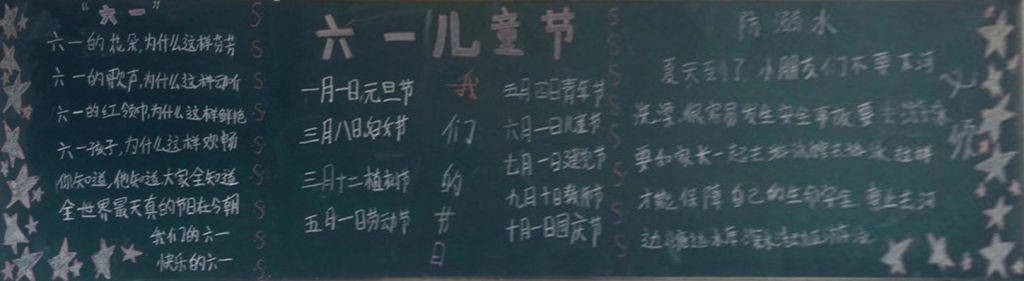 "六一"
六一的花朵,为什么这样芬芳
六一的歌声,为什么这样动听
六一的红领巾,为什么这样鲜艳
六一孩子,为什么这样欢畅
你知道,他知道,大家全知道
全世界最天真的节日在今朝
我们的六一
快乐的六一
六一儿童节
我们的节日
一月一日,元旦节
三月八日妇女节
三月十二植树节
五月一日劳动节
五月四日青年节
六月一日儿童节
七月一日建党节
九月十日教师节
十月一日国庆节
防溺水
夏天到了,小朋友们不要下河
洗澡,很容易发生安全事故,要
要和家长一起去
才能保障自己的生命安全